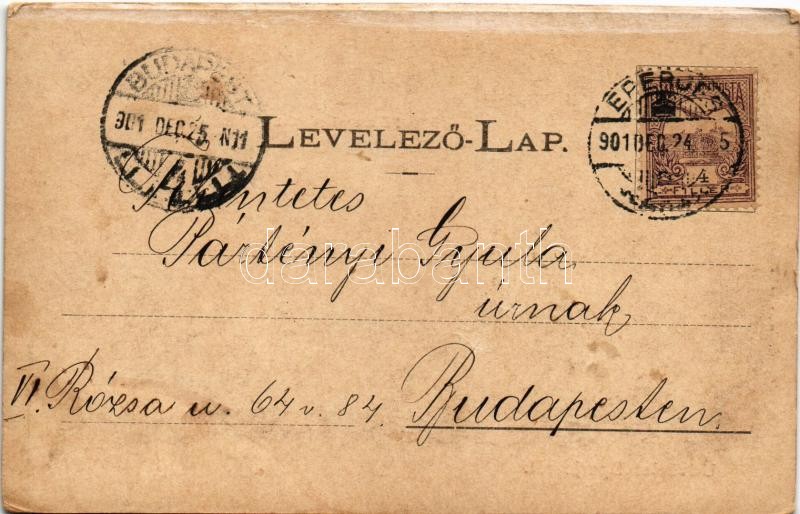 BUDAPEST
901 DEC. 25. N11
EPERJES
901 DEC. 24. 5
4
FILLÉR
LEVELEZŐ-LAP.
darabanth
Pártényi Gyula
úrnak
VI. Rózsa u. 64 v. 84.
Budapesten.